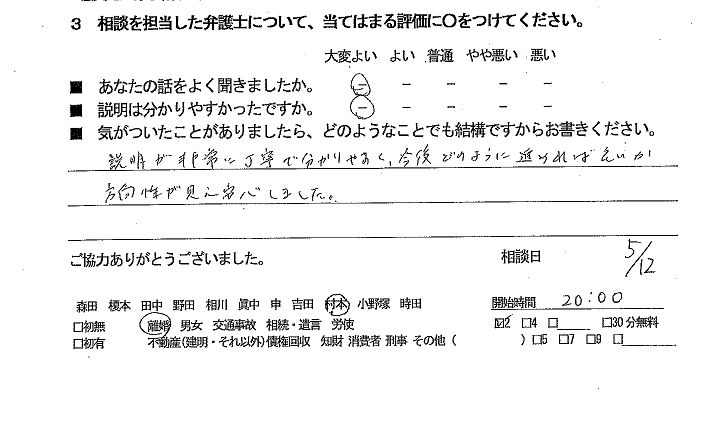 3 相談を担当した弁護士について、当てはまる評価に○をつけてください。
大変よい よい 普通 やや悪い 悪い
■ あなたの話をよく聞きましたか。 － － － － －
■ 説明は分かりやすかったですか。 － － － － －
■ 気がついたことがありましたら、どのようなことでも結構ですからお書きください。
説明が非常に丁寧で分かりやすく、今後どのように進めればよいか
方向性が見え安心しました。
ご協力ありがとうございました。 相談日 5/12
森田 榎本 田中 野田 相川 眞中 申 吉田 村本 小野塚 時田 開始時間 20:00
□初無 離婚 男女 交通事故 相続・遺言 労使 ☑2 □4 □ □30分無料
□初有 不動産(建明・それ以外)債権回収 知財 消費者 刑事 その他( ) □5 □7 □9 □